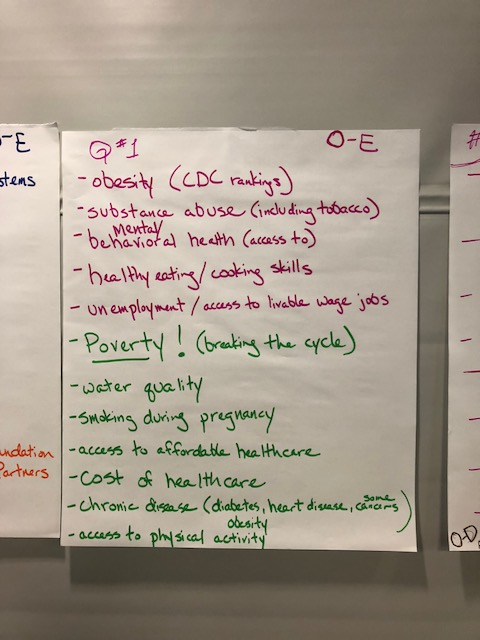 O-E
stems
undation
Partners
Q #1 O-E
- obesity (CDC rankings)
- substance abuse (including tobacco)
Mental/
- behavioral health (access to)
- healthy eating/cooking skills
- unemployment/access to livable wage jobs
- Poverty! (breaking the cycle)
- water quality
- smoking during pregnancy
- access to affordable healthcare
- cost of healthcare
- chronic disease (diabetes, heart disease, some cancers)
obesity
- access to physical activity
#
O-D